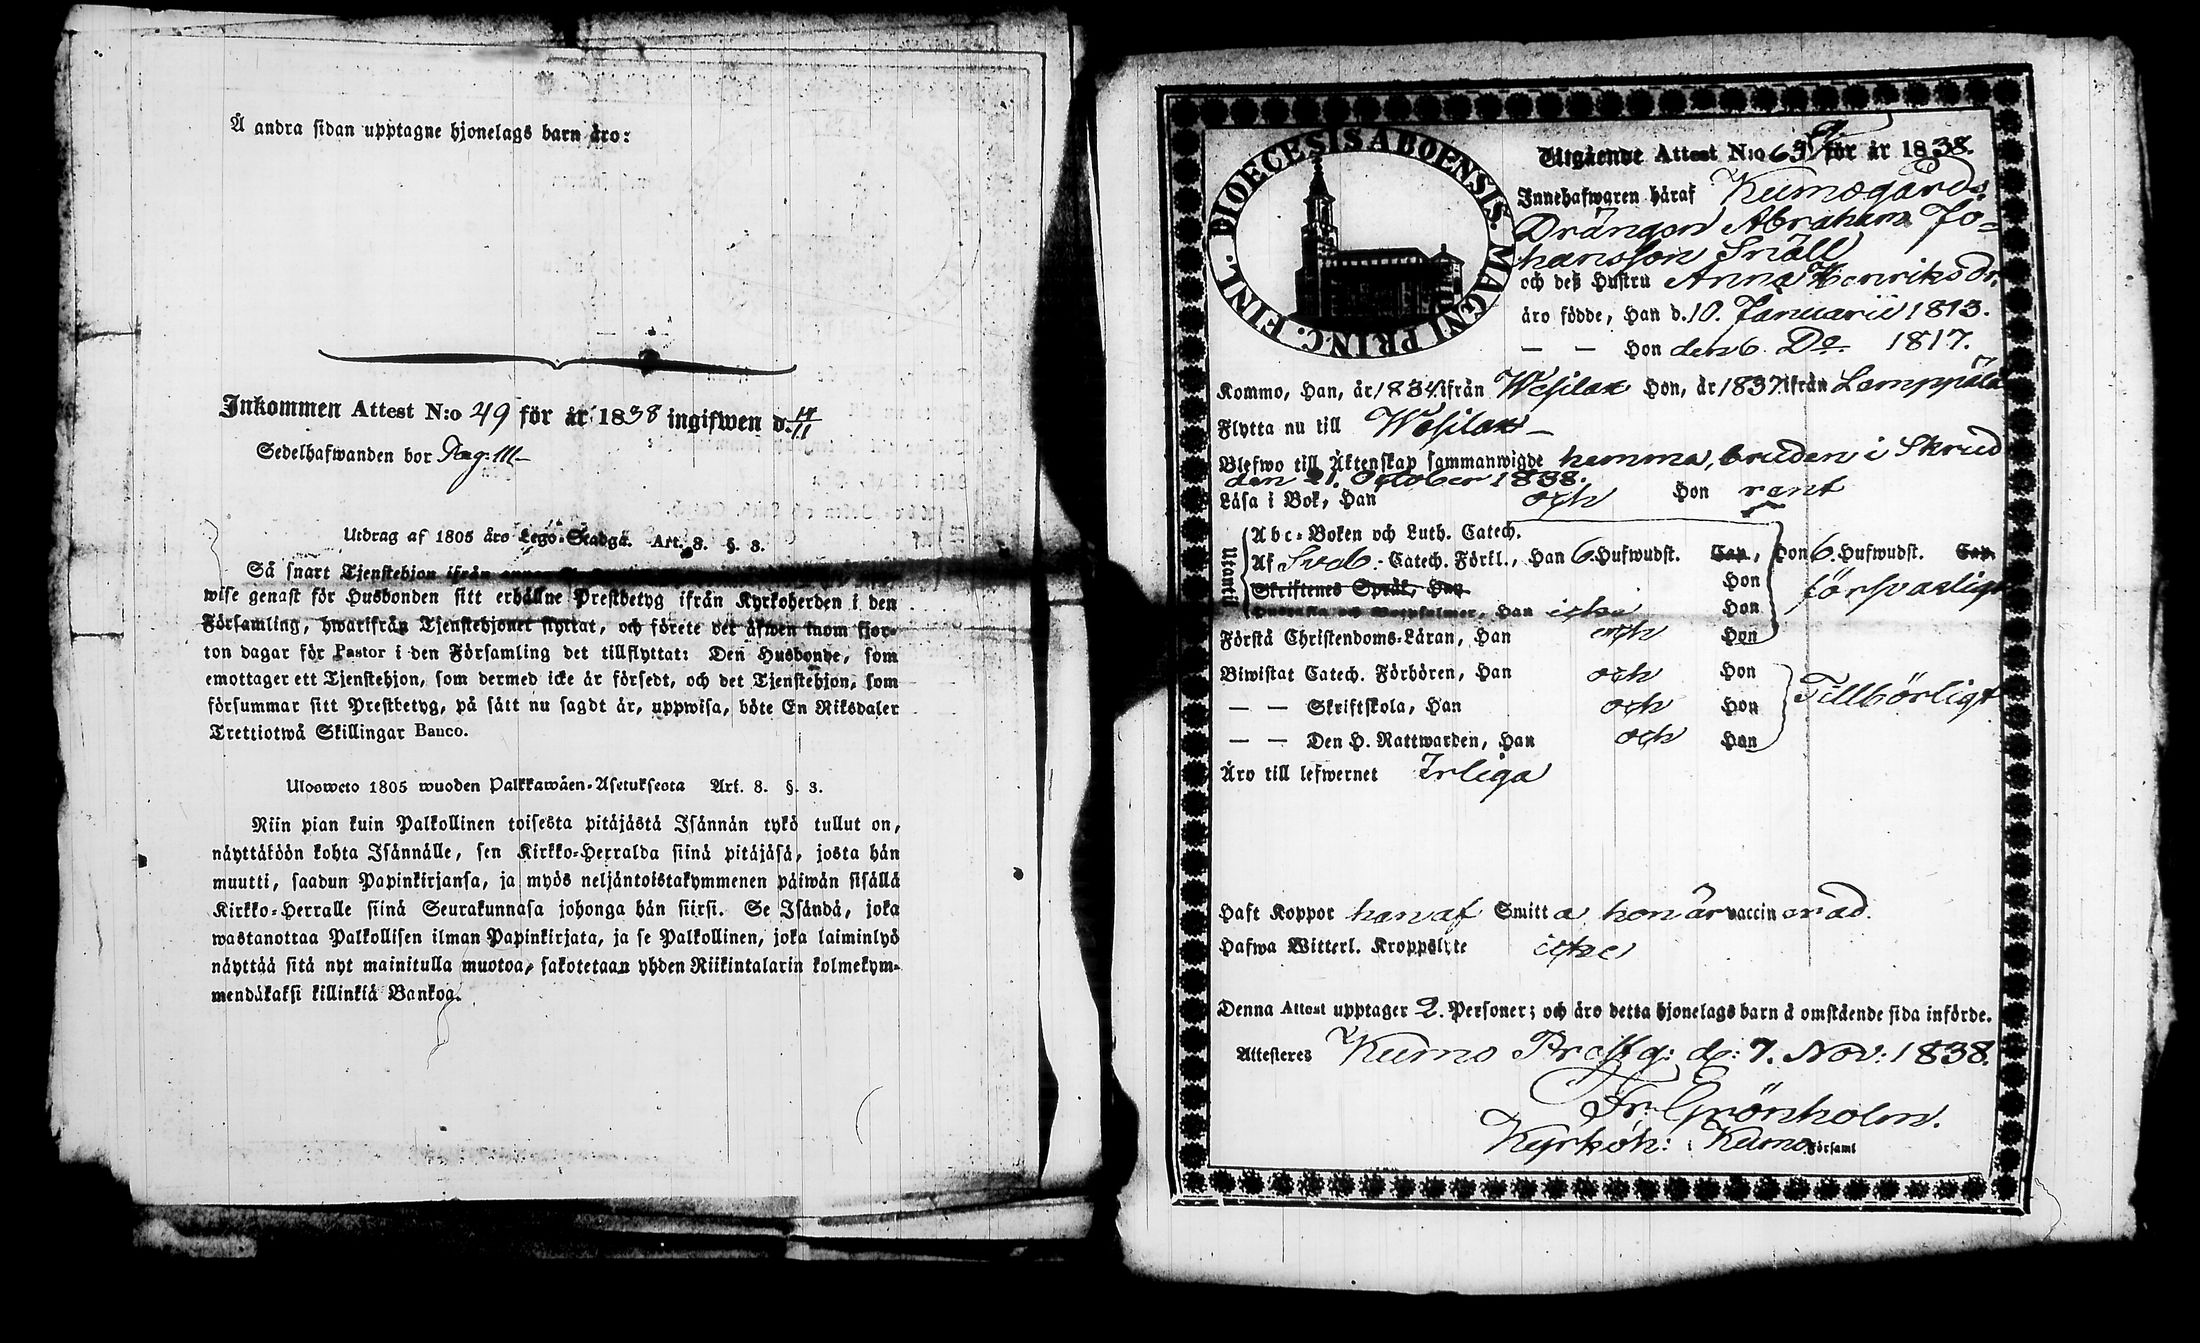 Å andra sidan upptagne hjonelags barn äro:
Inkommen Attest N:o 49 för år 1838 ingifwen d. 14/11
Sedelhafwanden bor Pag: 111
Utdrag af 1805 års Lego-Stadga. Art. 8. §. 3.
Så snart Tjenstehjon ifrån
wise genast för Husbonden sitt erhållne Prestbetyg ifrån Kyrkoherden i den
Församling, hwarifrån Tjenstehjonet flyttat, och förete det äfwen inom fjor-
ton dagar för Pastor i den Församling det tillflyttat: Den Husbonde, som
emottager ett Tjenstehjon, som dermed icke är försedt, och det Tjenstehjon, som
försummar sitt Prestbetyg, på sätt nu sagdt är, uppwisa, böte En Riksdaler
Trettiotwå Skillingar Banco.
Ulosweto 1805 wuoden Palkkawäen-Asetuksesta Art. 8. §. 3.
Niin pian kuin Palkollinen toisesta pitäjästä Isännän tykö tullut on,
näyttäköön kohta Isännälle, sen Kirkko-Herralda siinä pitäjäsä, josta hän
muutti, saadun Papinkirjansa, ja myös neljäntoistakymmenen päiwän sisällä
Kirkko-Herralle siinä Seurakunnasa johonga hän siirsi. Se Isändä, joka
wastanottaa Palkollisen ilman Papinkirjata, ja se Palkollinen, joka laiminlyö
näyttää sitä nyt mainitulla muotoa, sakotetaan yhden Riikintalarin kolmekym-
mendäkaksi killinkiä Bankoa.
DIOECESIS ABOENSIS. MAGNI PRINC. FINL.
Utgående Attest N:o för år 1838.
Innehafwaren häraf Kumogårds
Drängen Abraham Jo-
hansson Snäll
och deß Hustru Anna Henriksdr.
äro födde, Han d. 10. Januarii 1813.
— — Hon den 6. Do. 1817.
Kommo, Han, år 1834 ifrån Wesilax Hon, år 1837 ifrån Lemppälä
Flytta nu till Wesilax —
Blefwo till Äktenskap sammanwigde hemma, bruden i Skrud
den 21. October 1838.
Läsa i Bok, Han och Hon rent
Utantil
Abc-Boken och Luth. Catech.
Af Sveb.-Catech. Förkl., Han 6. Hufwudst. Cap., Hon 6. Hufwudst. Cap.
Skriftenes Språk, Han Hon försvarligt
Han icke Hon
Förstå Christendoms-Läran, Han och Hon
Biwistat Catech. Förhören, Han och Hon
— — Skriftskola, Han och Hon Tillbörligt
— — Den H. Nattwarden, Han och Hon
Äro till lefwernet Ärliga
Haft Koppor han af Smitta hon är vaccinerad.
Hafwa Witterl. Kroppslyte icke
Denna Attest upptager 2. Personer; och äro detta hjonelags barn å omstående sida införde.
Attesteres Kumo Prestg: d: 7. Nov: 1838.
Fr. Grönholm.
Kyrkoh: i Kumo Församl